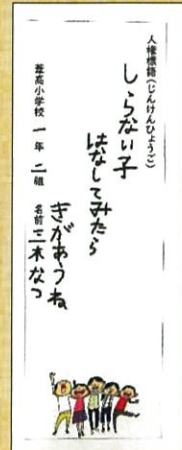 人権標語(じんけんひょうご)
しらない子
はなしてみたら
きがあうね
葦高小学校 一年 二組 名前 三木なつ